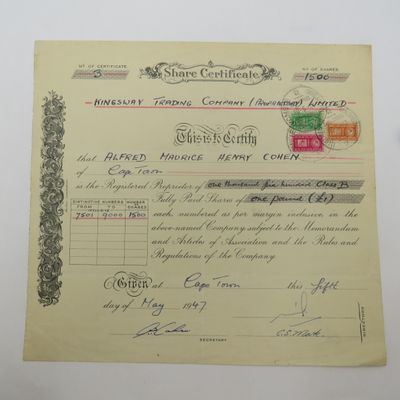 Nº OF CERTIFICATE
3
Share Certificate
Nº OF SHARES
1500
KINGSWAY TRADING COMPANY (PROPRIETARY) LIMITED
This is to Certify
that ALFRED MAURICE HENRY COHEN
of Cape Town
is the Registered Proprietor of one thousand five hundred Class B
Fully Paid Shares of one pound (£1)
DISTINCTIVE NUMBERS NUMBER
FROM TO
INCLUSIVE
7501 9000 1500
each, numbered as per margin inclusive, in the
above-named Company subject to the Memorandum
and Articles of Association and the Rules and
Regulations of the Company.
Given at Cape Town this fifth
day of May 1947.
SECRETARY
DIRECTORS